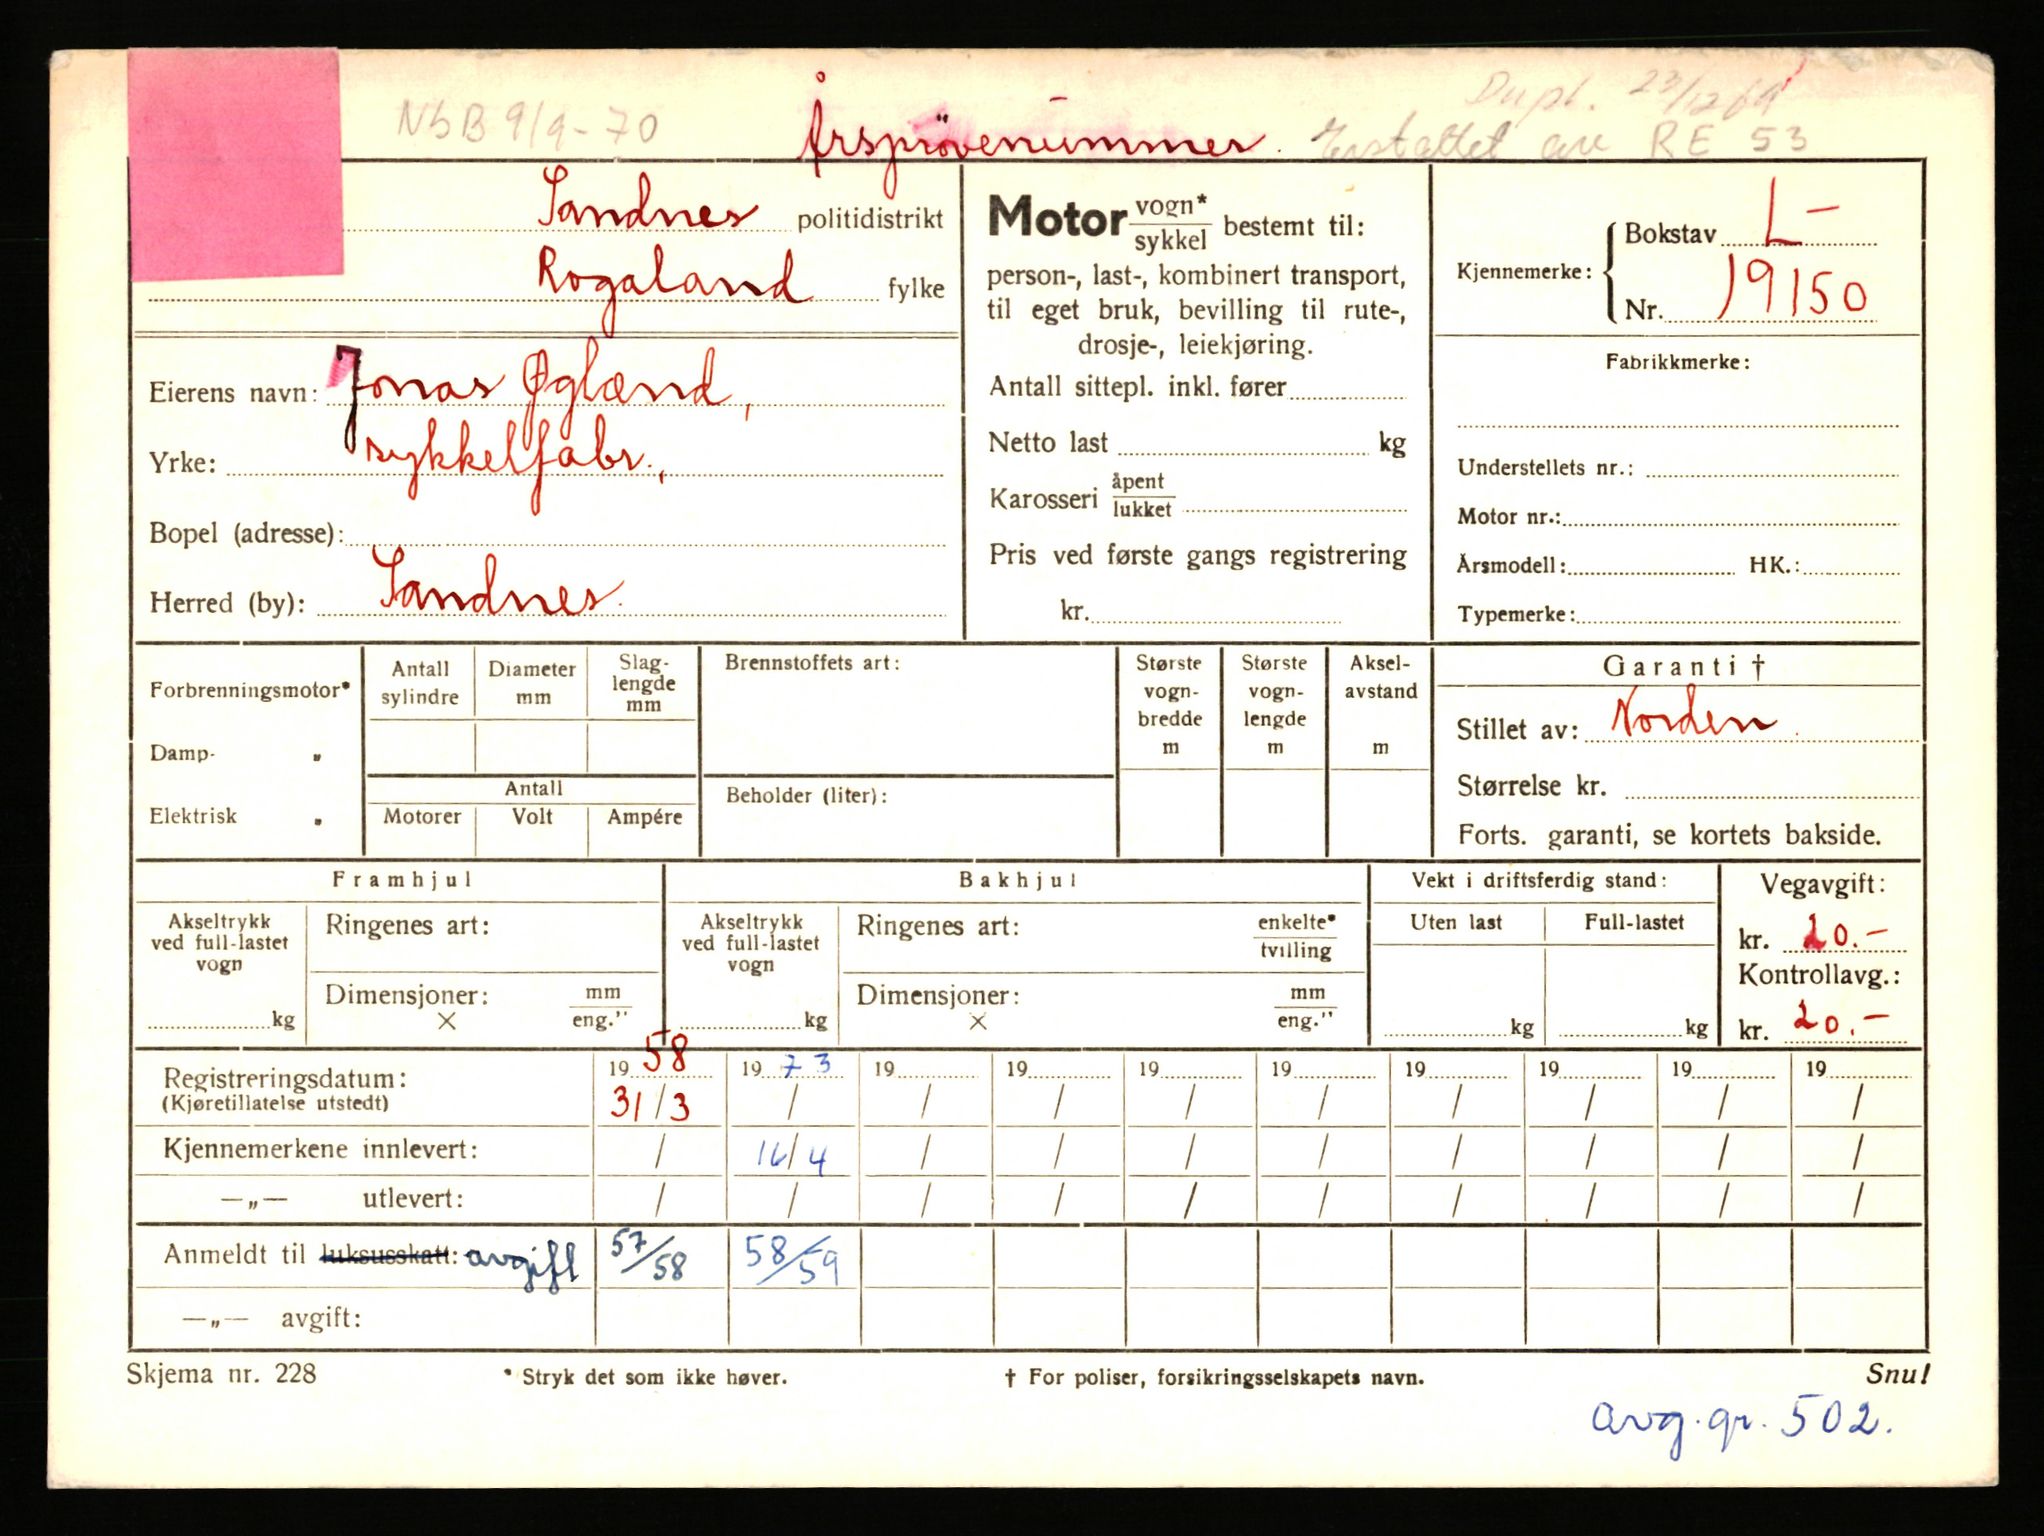 Dupl. 23/12 69
NbB 9/9-70 Årsprøvenummer. Erstattet av RE 53
Sandnes politidistrikt
Rogaland fylke
Eierens navn: Jonas Øglænd,
Yrke: sykkelfabr.,
Bopel (adresse):
Herred (by): Sandnes.
Motor vogn*/sykkel bestemt til:
person-, last-, kombinert transport,
til eget bruk, bevilling til rute-,
drosje-, leiekjøring.
Antall sittepl. inkl. fører
Netto last kg
Karosseri åpent/lukket
Pris ved første gangs registrering
kr.
Kjennemerke: Bokstav L-
Nr. 19150
Fabrikkmerke:
Understellets nr.:
Motor nr.:
Årsmodell: HK.:
Typemerke:
Forbrenningsmotor*
Damp- „
Elektrisk „
Antall sylindre
Diameter mm
Slag-lengde mm
Antall
Motorer Volt Ampére
Brennstoffets art:
Beholder (liter):
Største vogn-bredde m
Største vogn-lengde m
Aksel-avstand m
Garanti †
Stillet av: Norden.
Størrelse kr.
Forts. garanti, se kortets bakside.
Framhjul
Akseltrykk ved full-lastet vogn
kg
Ringenes art:
Dimensjoner: × mm/eng."
Bakhjul
Akseltrykk ved full-lastet vogn
kg
Ringenes art: enkelte*/tvilling
Dimensjoner: × mm/eng."
Vekt i driftsferdig stand:
Uten last Full-lastet
kg kg
Vegavgift:
kr. 20.-
Kontrollavg.:
kr. 20.-
Registreringsdatum: 19 58 19 73 19 19 19 19 19 19 19 19
(Kjøretillatelse utstedt) 31/3 / / / / / / / / /
Kjennemerkene innlevert: / 16/4 / / / / / / / /
—„— utlevert: / / / / / / / / / /
Anmeldt til luksusskatt: avgift 57/58 58/59
—„— avgift:
Skjema nr. 228 * Stryk det som ikke høver. † For poliser, forsikringsselskapets navn. Snu!
avg. gr. 502.